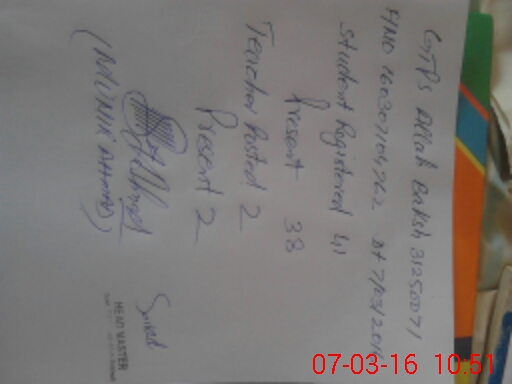 GTPS Allah Baksh 31250071
F/NO 160307104762 Dt 7/03/2016
Student Registered 41
Present 38
Teacher Posted 2
Present 2
(MUNIR AHMAD)
HEAD MASTER
07-03-16 10:51